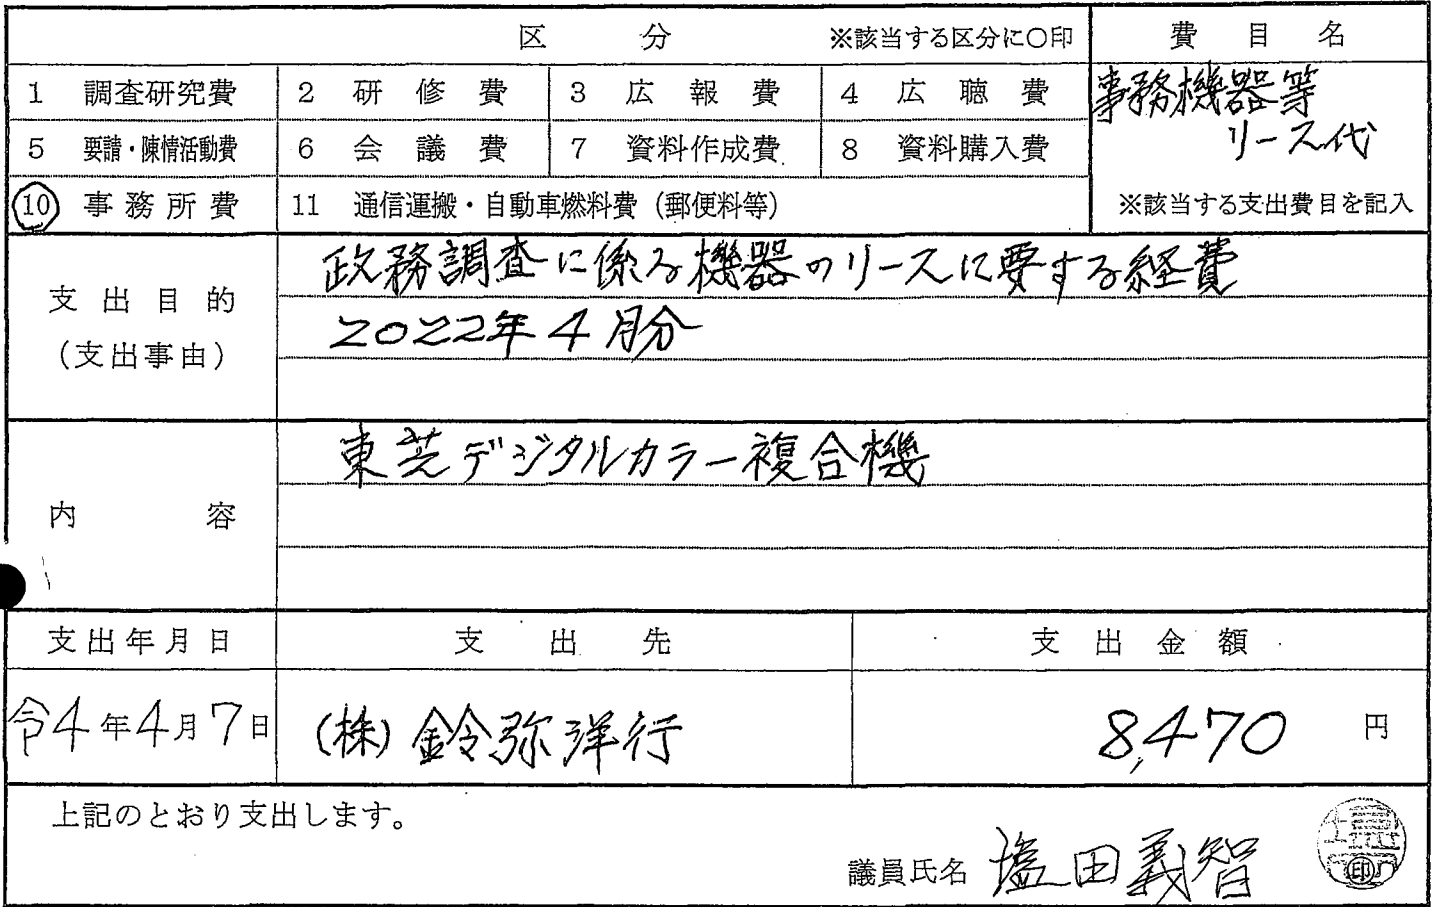 区 分 ※該当する区分に○印 費目名
1 調査研究費 2 研修費 3 広報費 4 広聴費 事務機器等
5 要請・陳情活動費 6 会議費 7 資料作成費 8 資料購入費 リース代
10 事務所費 11 通信運搬・自動車燃料費(郵便料等) ※該当する支出費目を記入
支出目的
(支出事由)
政務調査に係る機器のリースに要する経費
2022年4月分
内容
東芝デジタルカラー複合機
支出年月日 支出先 支出金額
令4年4月7日 (株)鈴弥洋行 8,470 円
上記のとおり支出します。
議員氏名 塩田義智 印